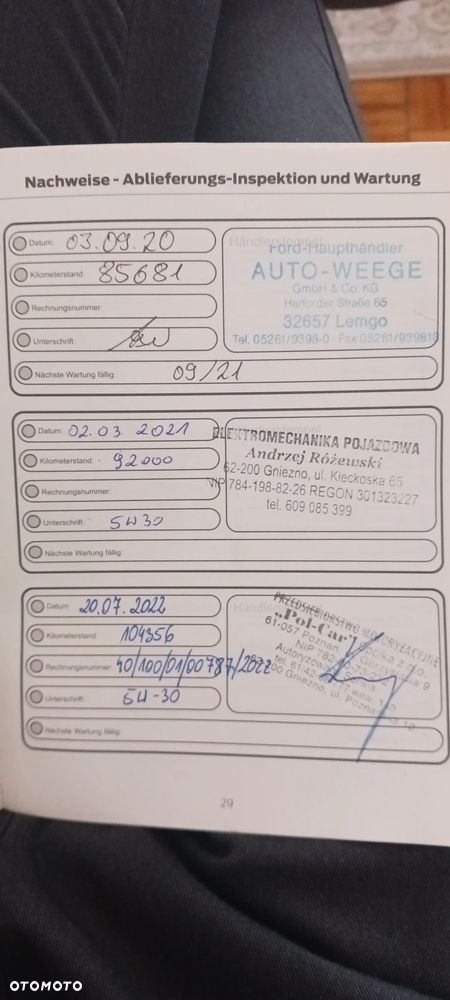 Nachweise - Ablieferungs-Inspektion und Wartung
Datum: 03.09.20
Kilometerstand: 85681
Rechnungsnummer:
Unterschrift:
Nächste Wartung fällig: 09/21
Händlerstempel
Ford-Haupthändler
AUTO-WEEGE
GmbH & Co. KG
Herforder Straße 65
32657 Lemgo
Tel. 05261/9398-0 · Fax 05261/939810
Datum: 02.03. 2021
Kilometerstand: 92000
Rechnungsnummer:
Unterschrift: 5W30
Nächste Wartung fällig:
ELEKTROMECHANIKA POJAZDOWA
Andrzej Różewski
62-200 Gniezno, ul. Kłeckoska 65
NIP 784-198-82-26 REGON 301323227
tel. 609 085 399
Datum: 20.07.2022
Kilometerstand: 104356
Rechnungsnummer: 40/100/01/00787/2022
Unterschrift: 5W-30
Nächste Wartung fällig:
PRZEDSIĘBIORSTWO MOTORYZACYJNE
„Pol-Car" Spółka z o.o.
61-057 Poznań
NIP 782
tel. 61-42
62-200 Gniezno, ul. Poznańska
29
OTOMOTO